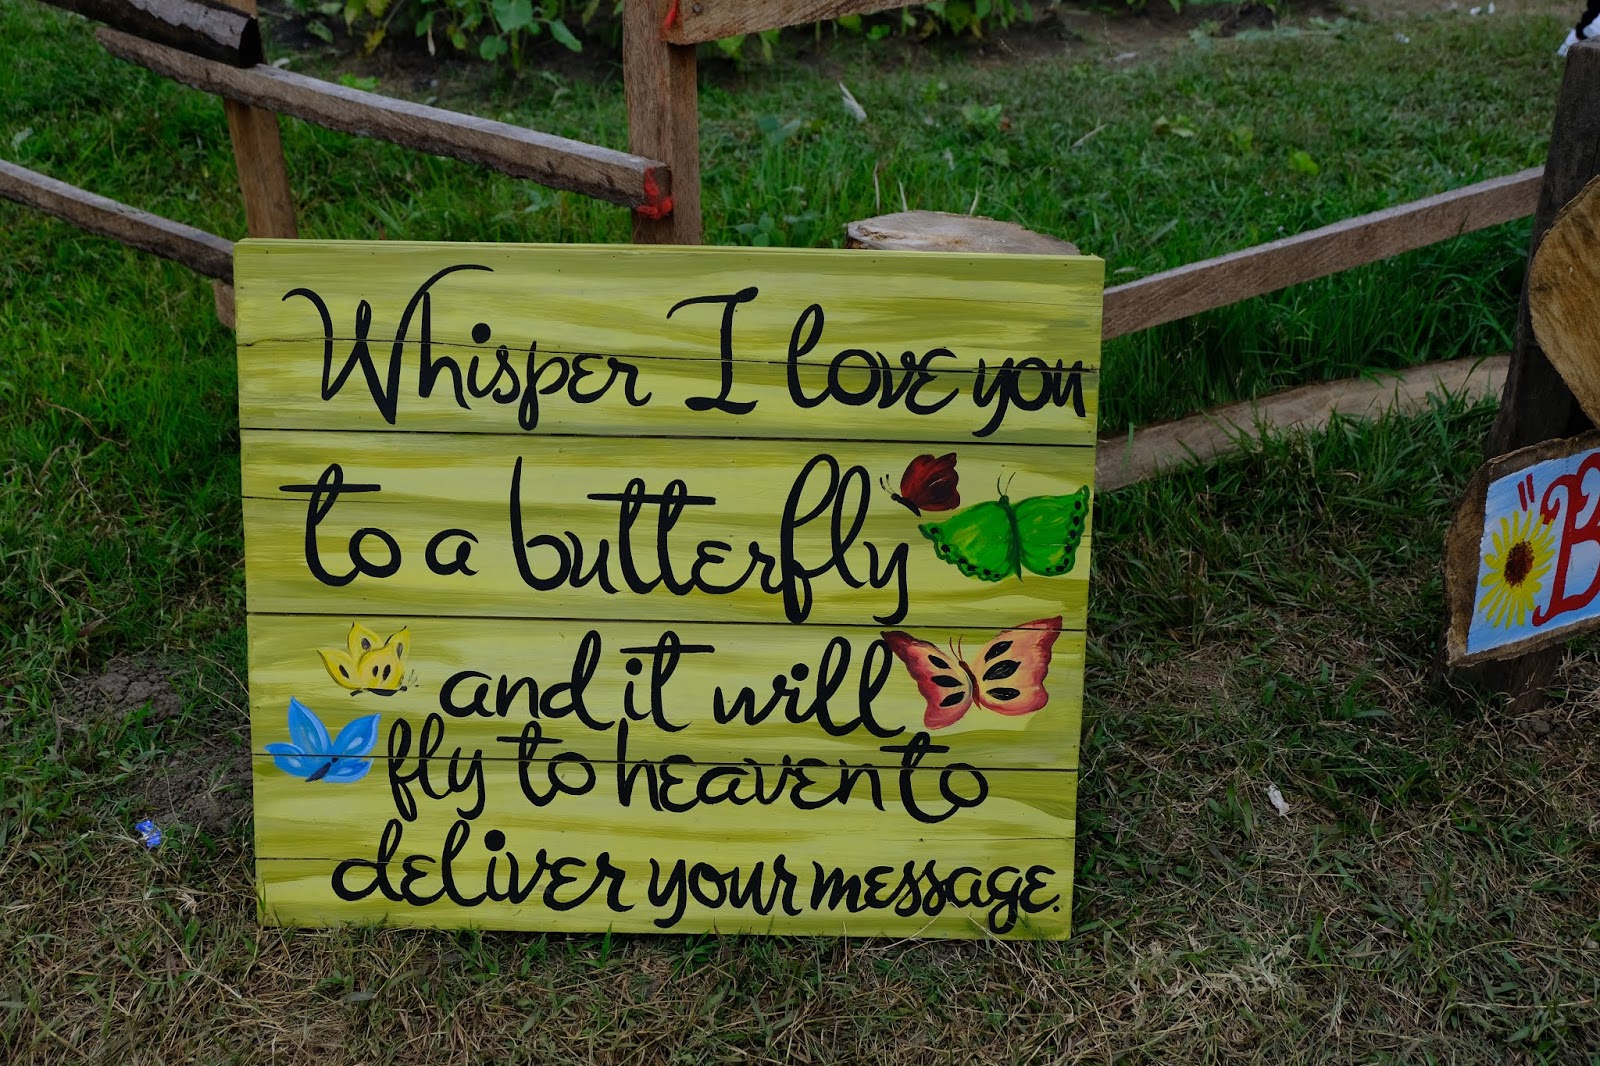 Whisper I love you
to a butterfly
and it will
fly to heaven to
deliver your message.
"B